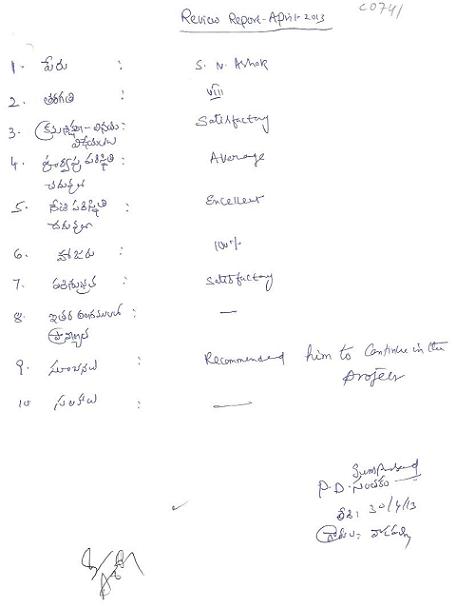 Review Report-April-2013
C0741
1. పేరు : S. N. Ashok
2. తరగతి : VIII
3. క్రమశిక్షణ - వినయ : Satisfactory
విధేయతలు
4. పూర్వపు పరిస్థితి : Average
చదువులో
5. నేటి పరిస్థితి : Excellent
చదువులో
6. హాజరు : 100%
7. పరిశుభ్రత : Satisfactory
8. ఇతర రంగములలో : —
ప్రావీణ్యత
9. సూచనలు : Recommended him to Continue in the
Project
10 : —
P.D.
తేది: 30/4/13